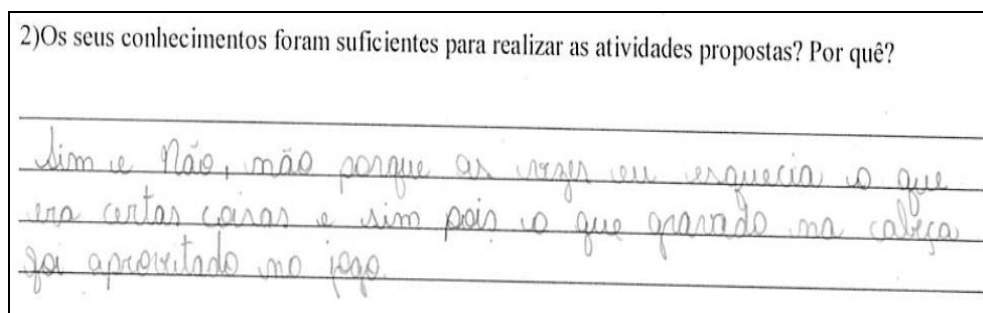 2)Os seus conhecimentos foram suficientes para realizar as atividades propostas? Por quê?
Sim e Não, não porque as vezes eu esquecia o que
era certas coisas e sim pois o que gravado na cabeça
foi aproveitado no jogo.